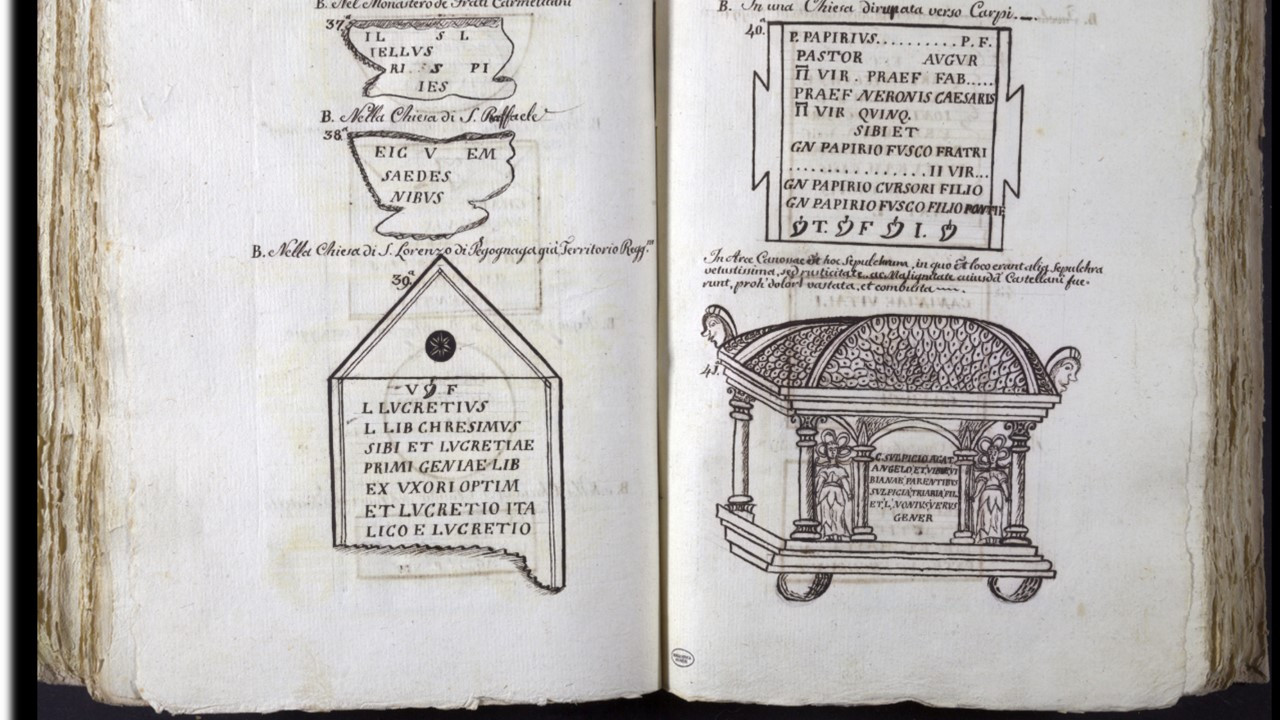 B. Nel Monastero de Frati Carmelitani
37.ª
IL S L
IELLVS
RI . : S PI
IES
B. Nella Chiesa di S. Raffaele
38.ª
EIG V EM
SAEDES
NIBVS
B. Nella Chiesa di S. Lorenzo di Pegognaga già Territorio Regg.
39.ª
V F
L LVCRETIVS
L LIB CHRESIMVS
SIBI ET LVCRETIAE
PRIMI GENIAE LIB
EX VXORI OPTIM
ET LVCRETIO ITA
LICO E LVCRETIO
B. In una Chiesa dirupata verso Carpi.
40.ª
P. PAPIRIVS.......... P. F.
PASTOR AVGVR
II VIR . PRAEF FAB.....
PRAEF NERONIS CAESARIS
II VIR QVINQ.
SIBI ET
GN PAPIRIO FVSCO FRATRI
................. II VIR...
GN PAPIRIO CVRSORI FILIO
GN PAPIRIO FVSCO FILIO
T. F I.
In Arce Canossae est hoc Sepulchrum, in quo Et loco erant aliq Sepulchra
vetustissima, sed rusticitate ac Malignitate cuiusdã Castellani fue-
runt, proh dolor! vastata, et combusta
41.ª
C. SVLPICIO AGAT
ANGELO ET
BIANAE PARENTIBVS
SVLPICIA TRIARIA FIL
ET L. NONIVS VERVS
GENER